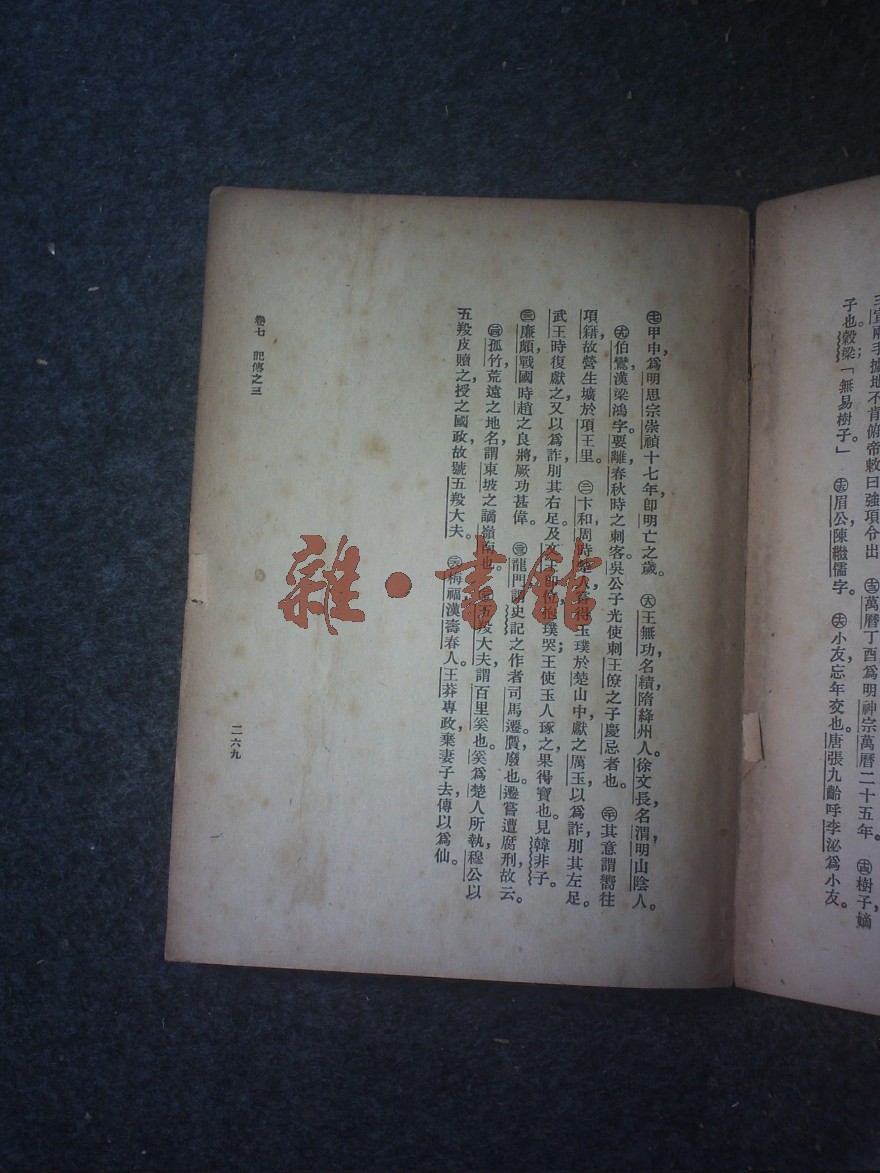 三宣兩手據地不肯俯帝敕曰強項令出 ㊼萬曆丁酉爲明神宗萬曆二十五年 樹子嫡
子也；穀梁「無易樹子。」 眉公，陳繼儒字。 小友，忘年交也。唐張九齡呼李泌爲小友。
甲申，爲明思宗崇禎十七年，卽明亡之歲。 王無功名績，隋絳州人。徐文長，名渭，明山陰人。
伯鸞，漢梁鴻字。要離，春秋時之刺客，吳公子光使刺王僚之子慶忌者也。 其意謂嚮往
項籍，故營生壙於項王里。 卞和，周時楚人，嘗得玉璞於楚山中，獻之厲王，以爲詐，刖其左足。
武王時復獻之，又以爲詐，刖其右足。及文王卽位，抱璞哭；王使玉人琢之，果得寶也。見韓非子。
廉頗，戰國時趙之良將，厥功甚偉。 龍門，謂史記之作者司馬遷。贋，廢也。遷嘗遭腐刑，故云。
孤竹，荒遠之地名，謂東坡之謫嶺南也。 五羖大夫，謂百里奚也。奚爲楚人所執，穆公以
五羖皮贖之，授之國政，故號五羖大夫。 梅福，漢壽春人。王莽專政，棄妻子去，傳以爲仙。
卷七 記傳之三
二六九
雜·書館